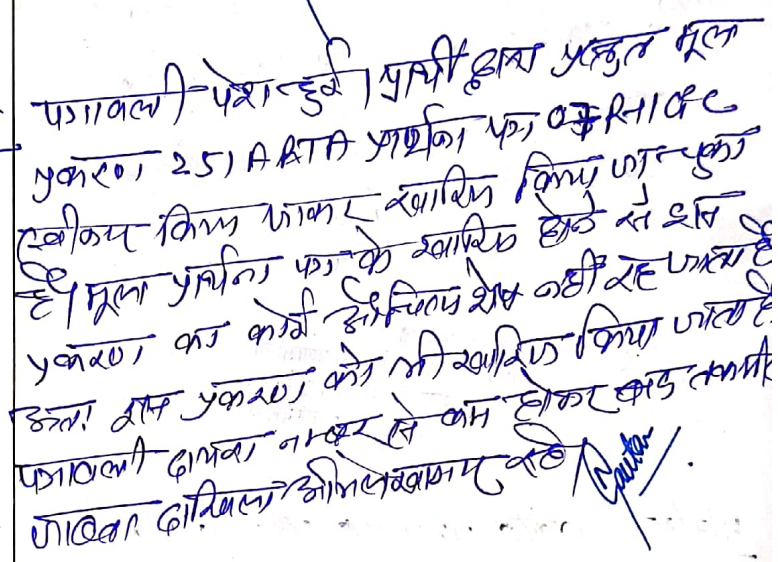 पत्रावली पेश हुई। प्रार्थी द्वारा प्रस्तुत मूल
प्रकरण 251 A RTA प्रार्थना पत्र 07 R-11 CPC
स्वीकार किया जाकर खारिज किया जा चुका
है। मूल प्रार्थना पत्र के खारिज होने से इस
प्रकरण का कोई औचित्य शेष नहीं रह जाता है
अतः इस प्रकरण को भी खारिज किया जाता है
पत्रावली दायरा नम्बर से कम होकर बाद तकमील
जाब्ता दाखिल अभिलेखागार रहे
Gautam